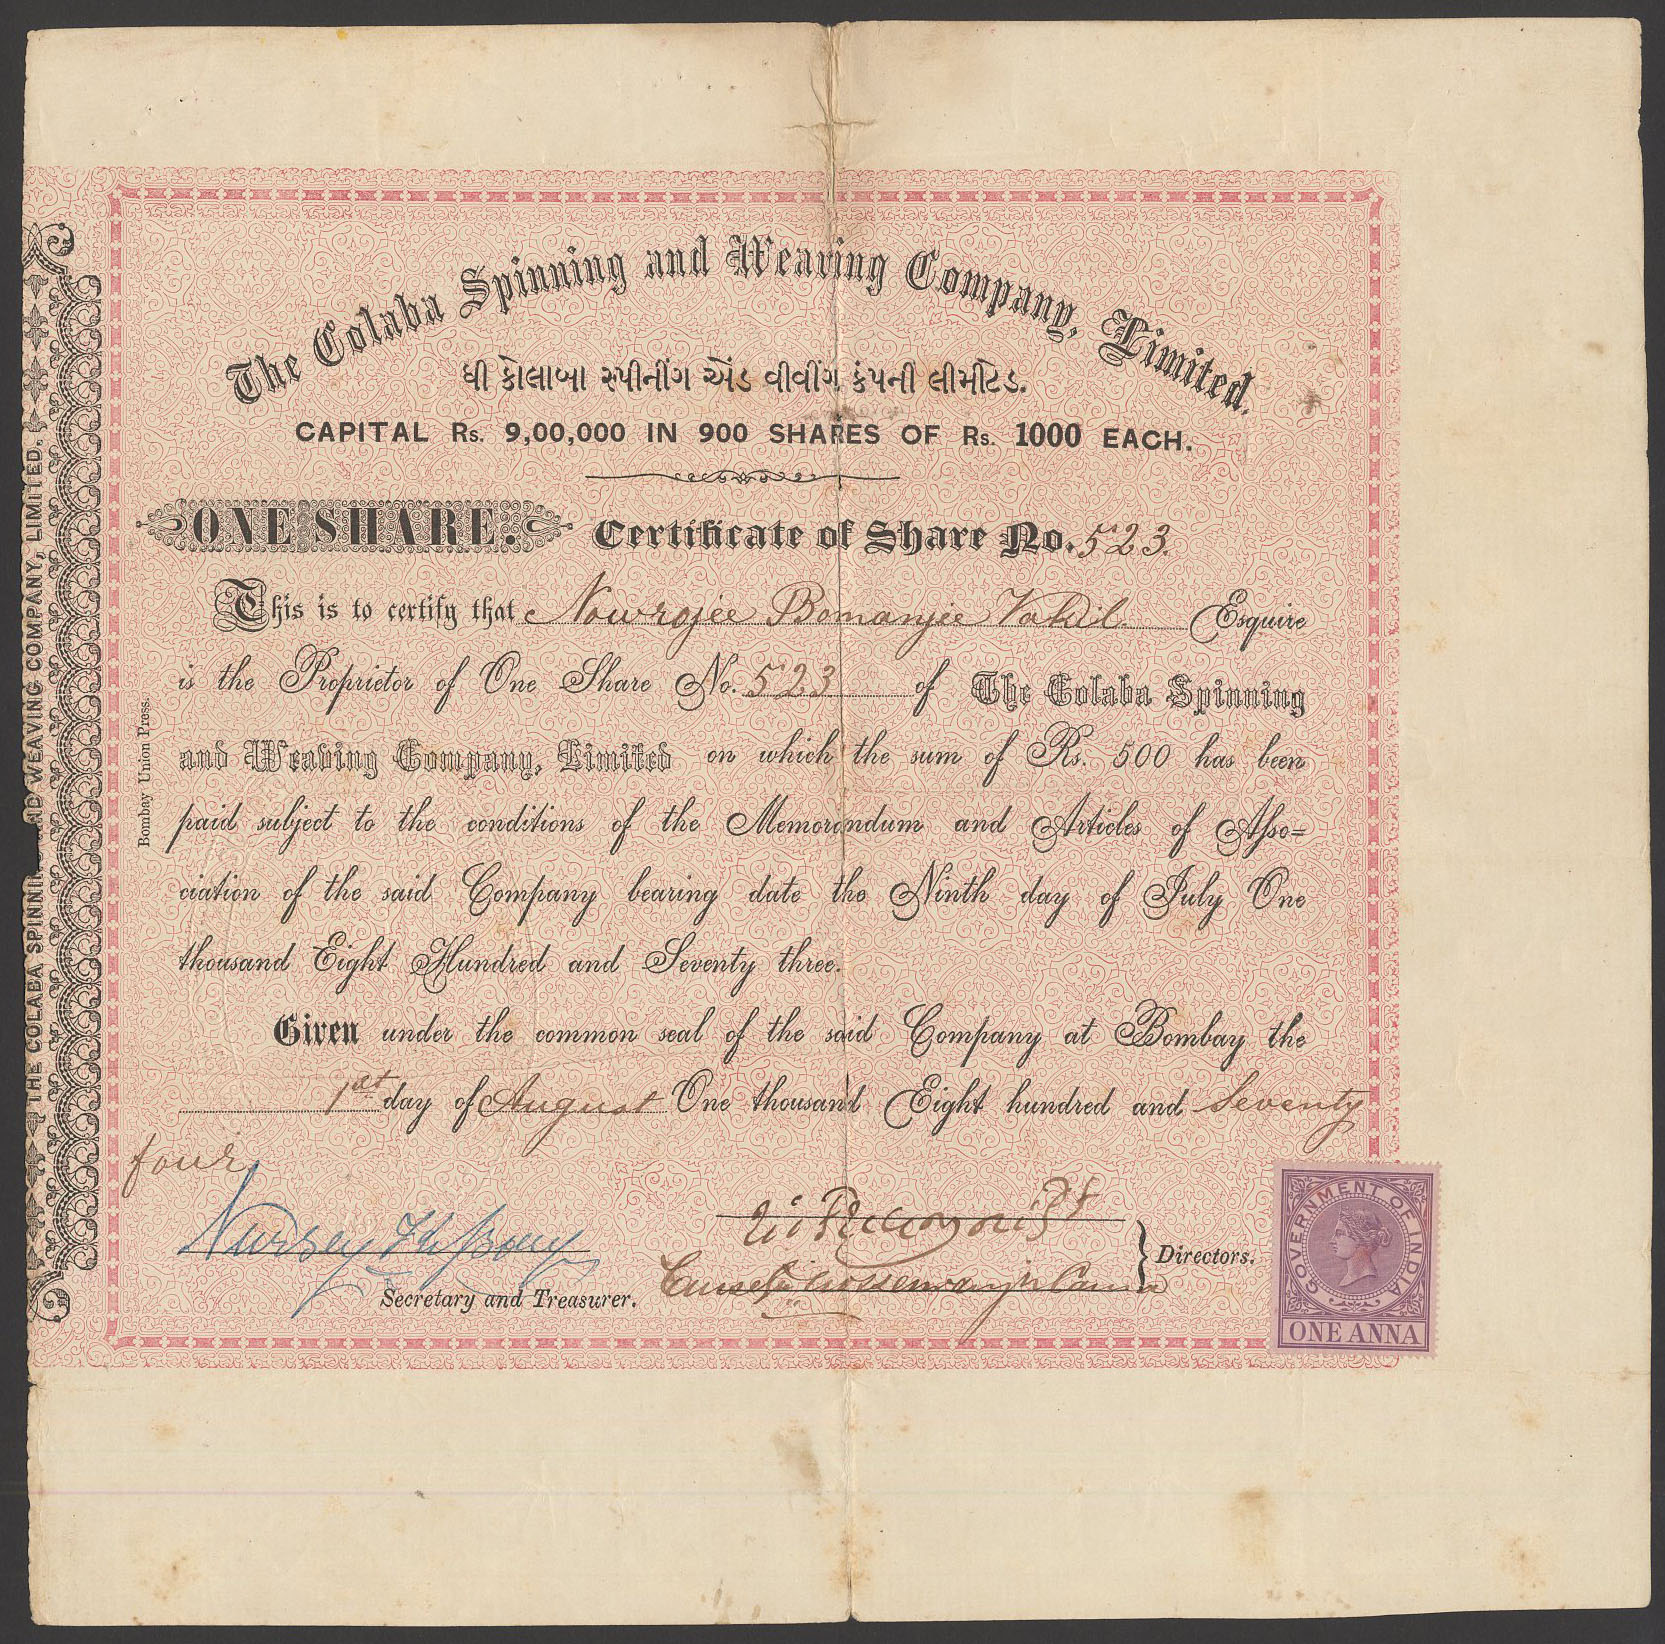 The Colaba Spinning and Weaving Company, Limited.
ધી કોલાબા સ્પીનીંગ એંડ વીવીંગ કંપની લીમીટેડ.
CAPITAL Rs. 9,00,000 IN 900 SHARES OF Rs. 1000 EACH.
ONE SHARE. Certificate of Share No. 523.
This is to certify that Nowrojee Bomanjee Vakil Esquire
is the Proprietor of One Share No. 523 of The Colaba Spinning
and Weaving Company, Limited on which the sum of Rs. 500 has been
paid subject to the conditions of the Memorandum and Articles of Asso=
ciation of the said Company bearing date the Ninth day of July One
thousand Eight Hundred and Seventy three.
Given under the common seal of the said Company at Bombay the
1st day of August One thousand Eight hundred and Seventy
four
Nursey
Secretary and Treasurer.
Directors.
GOVERNMENT OF INDIA
ONE ANNA
Bombay Union Press.
THE COLABA SPINNING AND WEAVING COMPANY, LIMITED.